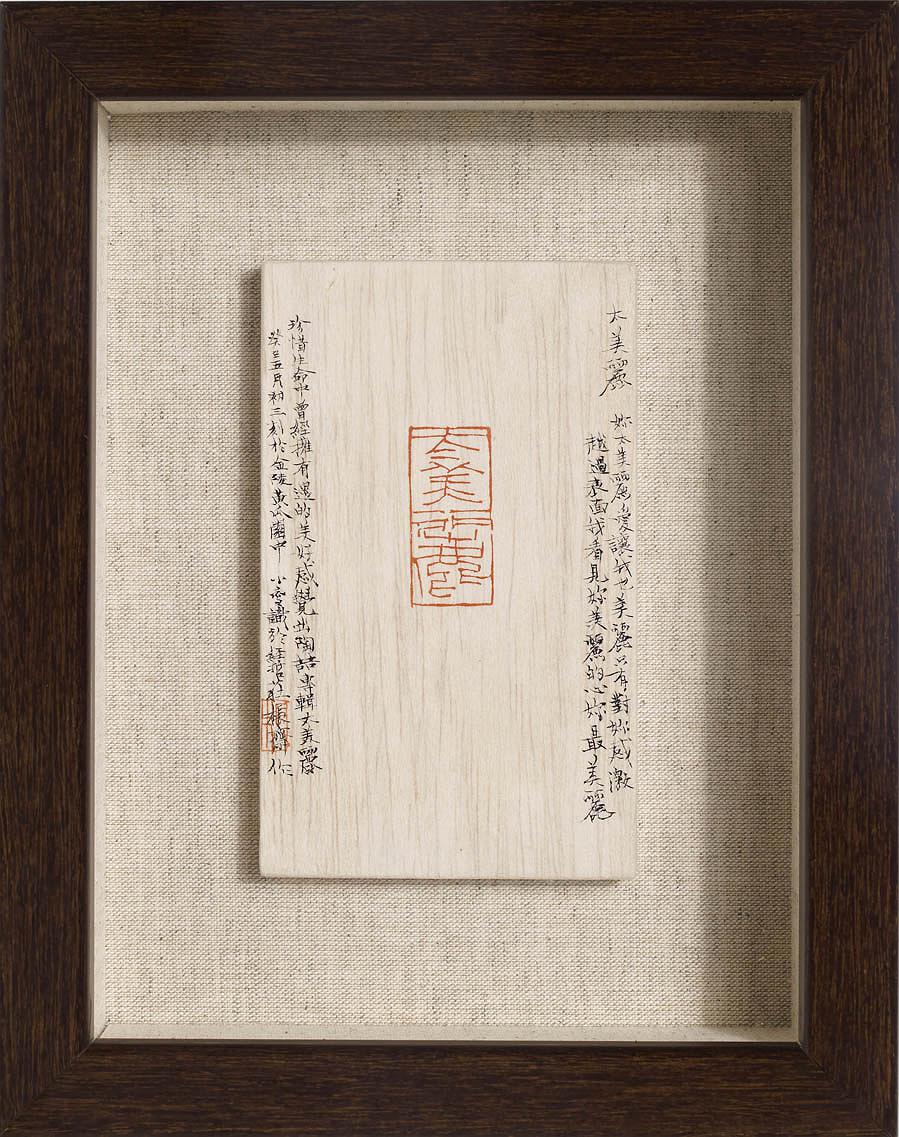 太美麗 妳太美麗愛讓我也美麗只有對妳感激
越過表面我看見妳美麗的心妳最美麗
太美麗
珍惜生命中曾經擁有過的美好感覺出陶喆專輯太美麗
癸巳五月初三刻於金陵黃瓜園中 小 識於
作